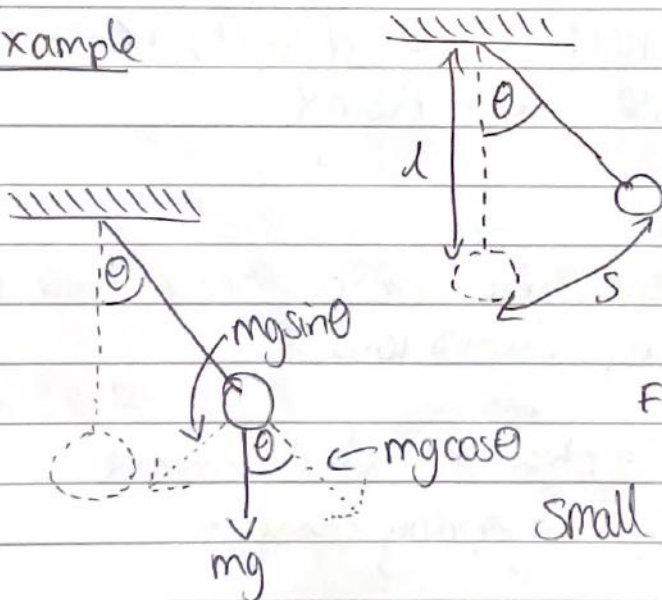 xample
θ
l
s
θ
mgsinθ
F
θ
mgcosθ
small
mg